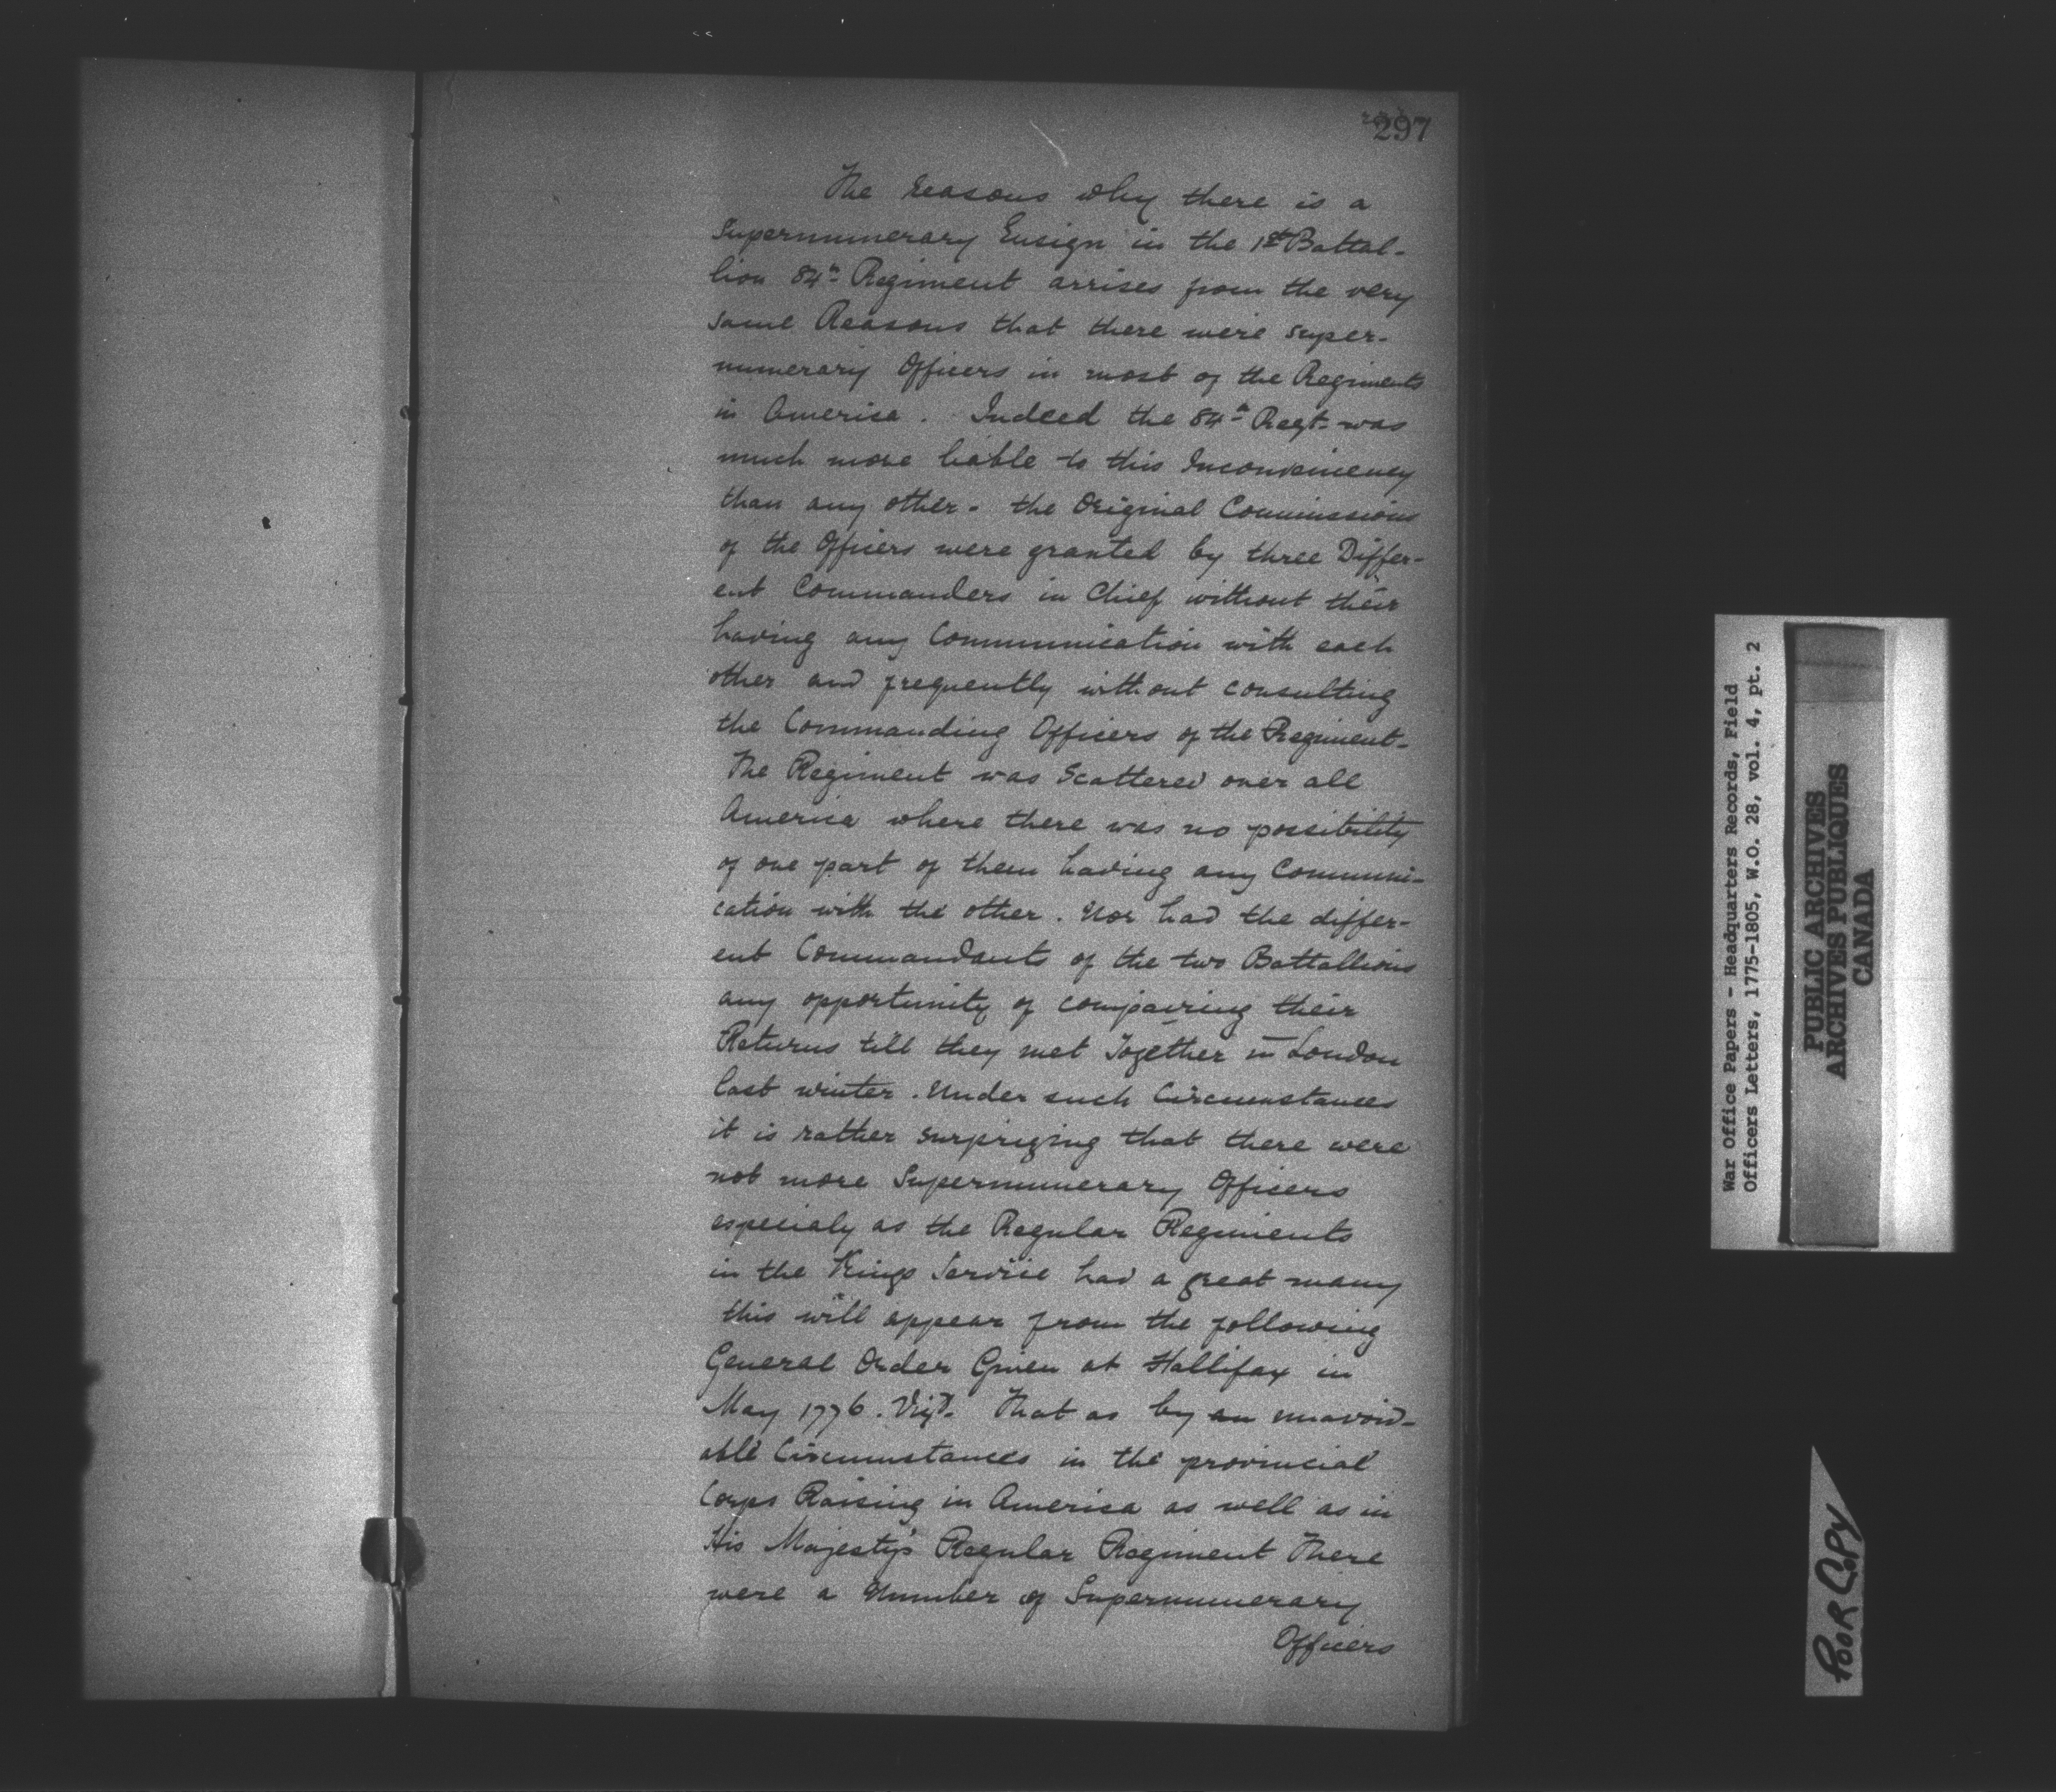 297
The Reasons why there is a
Supernumerary Ensign in the 1st Battal-
lion 84th Regiment arrises from the very
same Reasons that there were super-
numerary Officers in most of the Regiments
in America. Indeed the 84th Regt. was
much more liable to this Inconveniency
than any other - the Original Commissions
of the Officers were granted by three Differ-
ent Commanders in Chief without their
having any Communication with each
other and frequently without consulting
the Commanding Officers of the Regiment-
The Regiment was Scattered over all
America where there was no possibility
of one part of them having any Communi-
cation with the other. Nor had the differ-
ent Commandants of the two Battallions
any opportunity of compairing their
Returns till they met Together in London
last winter. Under such Circumstances
it is rather surprizing that there were
not more Supernumerary Officers
especialy as the Regular Regiments
in the Kings Service had a great many
this will appear from the following
General Order Given at Hallifax in
May 1776. Vizt. That as by an unavoid-
able Circumstances in the provincial
Corps Raising in America as well as in
His Majesty's Regular Regiment There
were a Number of Supernumerary
Officers
War Office Papers - Headquarters Records, Field
Officers Letters, 1775-1805, W.O. 28, vol. 4, pt. 2
PUBLIC ARCHIVES
ARCHIVES PUBLIQUES
CANADA
POOR COPY